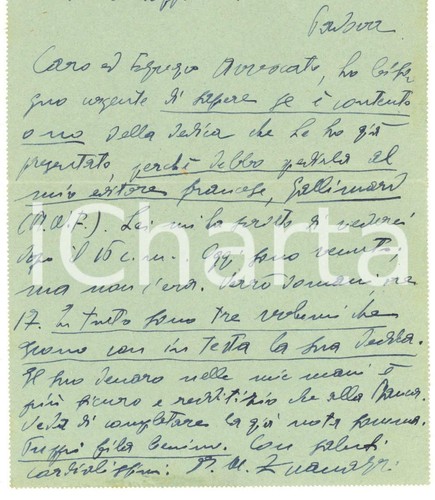 Padova
Caro ed Egregio Avvocato, ho biso
gno urgente di sapere se è contento
o no della dedica che Le ho già
presentato, perché debbo spedirla al
mio editore francese, Gallimard
(N.R.F.). Lei mi ha scritto di vederci
dopo il 15 c.m.. Oggi sono venuto,
ma non c'era. Verrò domani, ore
17. In tutto sono tre volumi che
escono con in testa la sua dedica.
Il suo denaro nelle mie mani è
più sicuro e redditizio che alla Banca.
Veda di completare la già nota somma.
Con saluti
cordialissimi.
iCharta